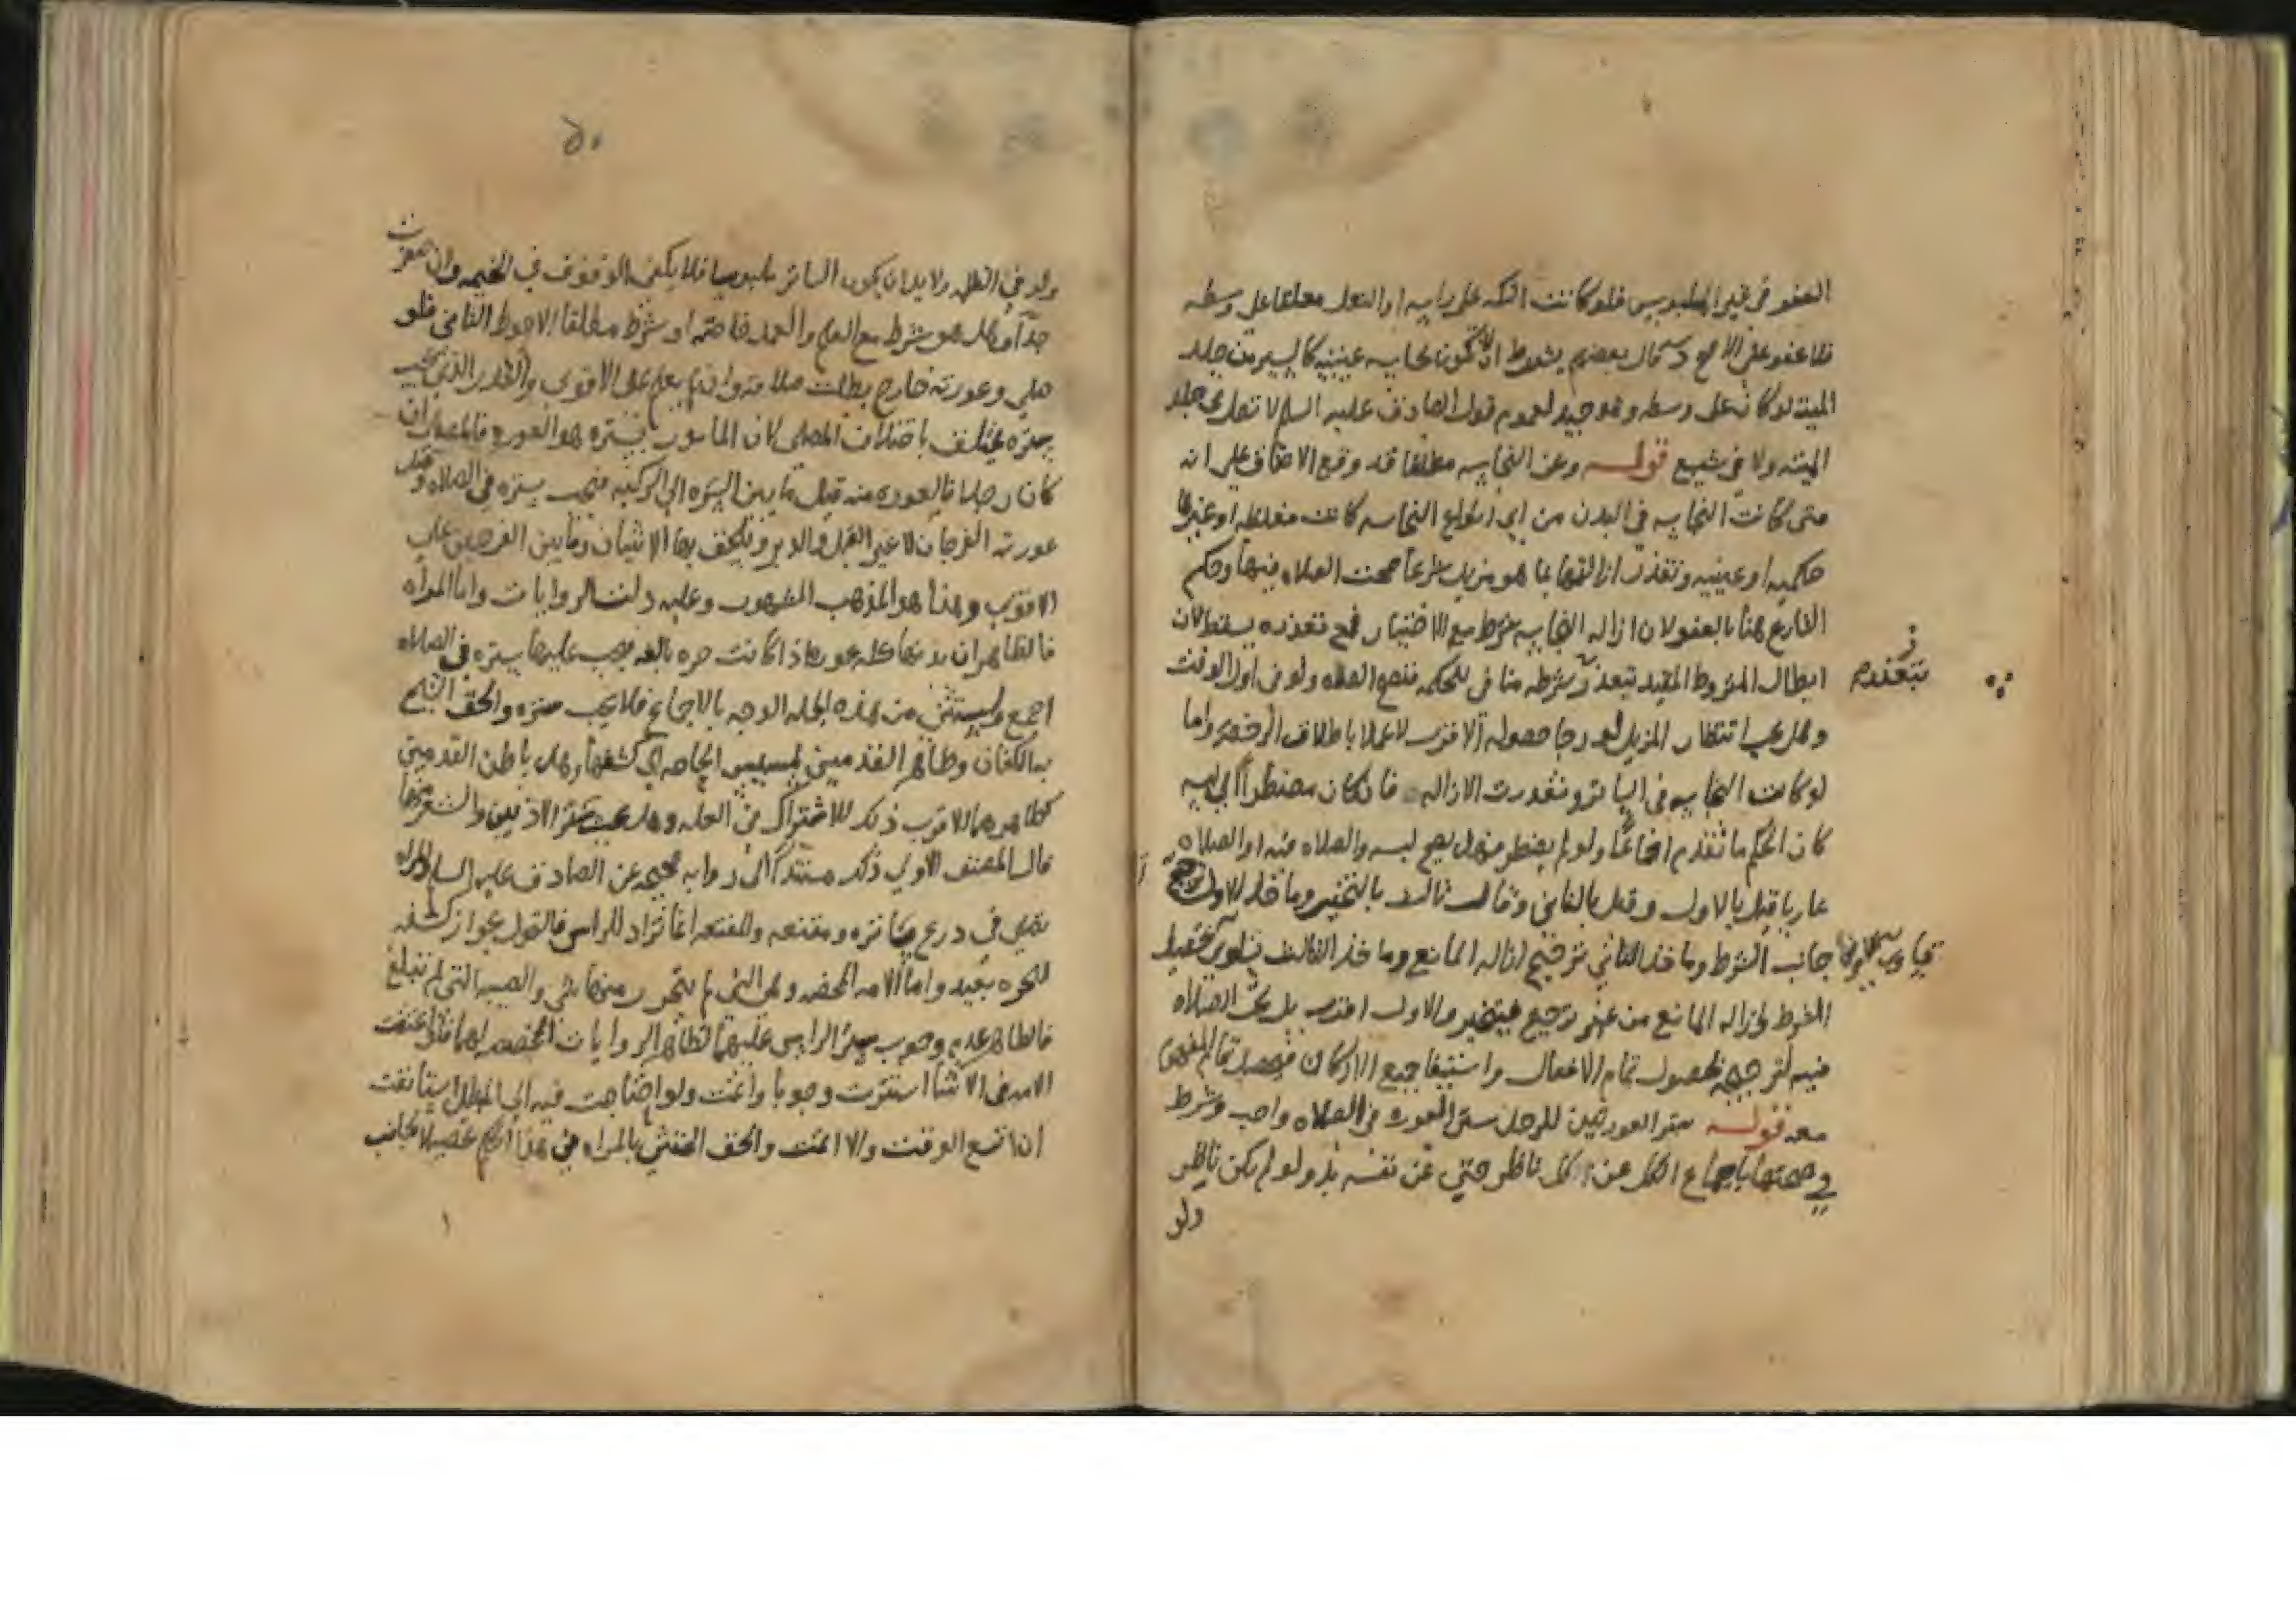 العفو في غير الملبوس فلو كانت التكه على راسه او النعل معلقا على وسطه
فلا عفو على الاصح وقال بعضهم يشترط ان لا تكون نجاسه عينيه كالسير من جلد
الميته لو كان على وسطه وهو جيد لعموم قول الصادق عليه السلم لا تصل في جلد
الميته ولا في شسع قوله وعن النجاسه مطلقا قد وقع الاتفاق على انه
متى كانت النجاسه في البدن من اي انواع النجاسه كانت مغلظه او غيرها
حكميه او عينيه وتعذرت ازالتها بما هو مزيل شرعا صحت الصلاه فيها وحكم
الشارع هنا بالعفو لان ازاله النجاسه شرط مع الاختيار فمع تعذره يسقط لان
ابطال المشروط المقيد بتعذر شرطه منافي للحكمه فتصح الصلاه ولو في اول الوقت
بتعذره
وهل يجب انتظار المزيل لو رجا حصوله الاقرب لا عملا باطلاق الرخصه واما
لو كانت النجاسه في الساتر وتعذرت الازاله فان كان مضطرا الى لبسه
كان الحكم ما تقدم اجماعا ولو لم يضطر فهل يصح لبسه والصلاه فيه او الصلاه
عاريا قيل بالاول وقيل بالثاني وقال ثالث بالتخيير وماخذ الاول ترجيح
جانب الشرط وماخذ الثاني ترجيح ازاله المانع وماخذ الثالث تساوي تحصيل
الشرط وازاله المانع من غير ترجيح فيتخير والاول اقرب بل تجب الصلاه
فيه لترجيحه بحصول تمام الافعال واستيفا جميع الاركان فيحصل تمام المقصود
معه قوله ستر العورتين للرجل ستر العوره في الصلاه واجب وشرط
في صحتها باجماع الكل عن كل ناظر حتى عن نفسه بل ولو لم يكن ناظر
ولو
٥٠
ولو في الظلمه ولا بد ان يكون الساتر ملبوسا فلا يكفي الوقوف في الخيمه وان صغرت
جدا وهل هو شرط مع العلم والعمد خاصه او شرط مطلقا الاحوط الثاني فلو
صلى وعورته خارج بطلت صلاته وان لم يعلم على الاقوى والقدر الذي يجب
ستره يختلف باختلاف المصلي لان المامور بستره هو العوره فالمصلي ان
كان رجلا فالعوره منه قيل ما بين السره الى الركبه فيجب ستره في الصلاه وقيل
عورته الفرجان لا غير القبل والدبر ويلحق بها الانثيان وما بين الفرجين على
الاقوى وهذا هو المذهب المشهور وعليه دلت الروايات واما المراه
فالظاهر ان بدنها كله عوره اذا كانت حره بالغه فيجب عليها ستره في الصلاه
اجمع ويستثنى من هذه الجمله الوجه بالاجماع فلا يجب ستره والحق الشيخ
به الكفان وظاهر القدمين لمسيس الحاجه الى كشفها وهل باطن القدمين
كظاهرهما الاقرب ذلك للاشتراك في العله وهل يجب ستر الاذنين والشعر منها
قال المصنف الاولى ذلك مستندا الى روايه صحيحه عن الصادق عليه السلم المراه
تصلي في درع ساتره ومقنعه والمقنعه انما تراد للراس فالقول بجواز كشفه
للحره بعيد واما الامه المحضه وهي التي لم يتحرر منها شي والصبيه التي لم تبلغ
فالظاهر عدم وجوب ستر الراس عليهما لظاهر الروايات المخصصه لهما فلو اعتقت
الامه في الاثنا استترت وجوبا واتمت ولو احتاجت فيه الى المبطل استانفت
ان اتسع الوقت والا اتمت والحق الخنثى بالمراه في هذا الحكم تحصيلا لجانب